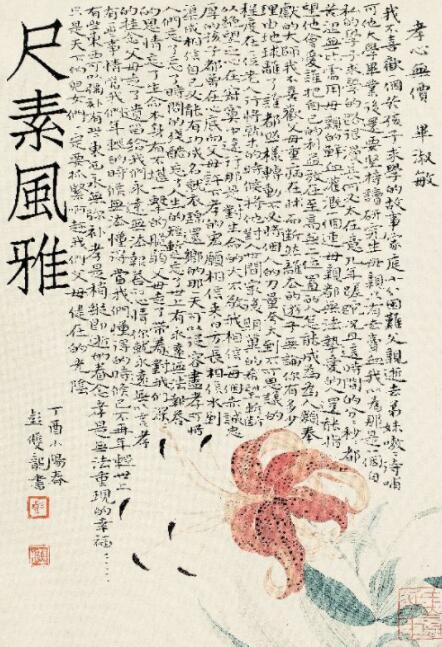 孝心無價 畢淑敏
我不喜歡一個苦孩子求學的故事家庭十分困難父親逝去弟妹嗷嗷待哺
可他大學畢業後還要堅持讀研究生母親只有去賣血我以為那是一個自
私的學子求學的路很漫長何必太在意幾年蹉跎況且這時間的分分秒秒都
苦澀無比需用母親的鮮血灌溉一個連母親都無法摯愛的人還能指
望他會愛誰把自己的利益放在至高無上位置的人怎能成為為人類奉
獻的大師我不喜歡父母重病在床而斷然離去的遊子無論你有多少
理由地球離了誰都照樣轉動不必將個人的力量夸大到不可思議的
程度在一位老人行將就木的時候將他對人世間最後期冀的希望斬斷
以絕望之心在寂寞中遠行那是對生命的大不敬我相信每個赤誠忠
厚的孩子都曾在心底向父母許下孝的宏願相信來日方長相信水到
渠成相信自己必有功成名就衣錦還鄉的那天可以從容盡孝可惜
人們忘了忘了時間的殘酷忘了人生的短暫忘了世上有永遠無法報答
的恩情忘了生命本身有不堪一擊的脆弱父母走了帶着對我們深深
的掛念父母走了遺留給我們永遠無法償還的心情你就永遠無以言孝
有一些事情當我們年輕的時候無法懂得當我們懂得的時候已不再年輕世上
有些東西可以彌補有些東西永無彌補孝是稍縱即逝的眷念孝是無法重現的幸福……
只是天下的兒女們一定要抓緊啊趁我們父母健在的光陰
丁酉小陽春
彭雙龍書
尺素風雅